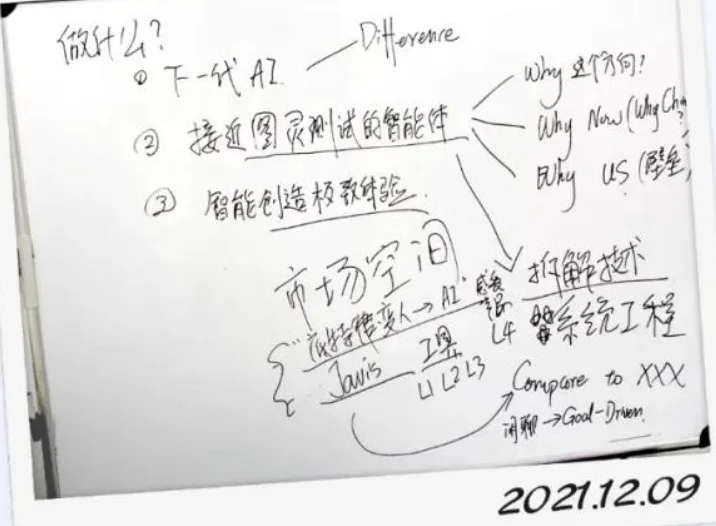 做什么?
① 下一代 AI. Difference
② 接近图灵测试的智能体
③ 智能创造极致体验.
Why 这个方向?
Why Now (Why
Why US (壁垒
市场空间
"底特律变人→AI"
Javis 工具
L1 L2 L3
L4
拆解技术
系统工程
Compare to XXX
闲聊→Goal-Driven.
2021.12.09